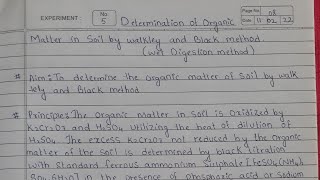 EXPERIMENT: No. 5 Determination of Organic
Page No. 08
Date 11 02 22
Matter in Soil by walkley and Black method.
(wet Digestion method)
* Aim: To determine the organic matter of Soil by walk
ley and Black method
* Principle: The organic matter in soil is oxidized by
K2Cr2O7 and H2SO4 utilizing the heat of dilution of
H2SO4. The excess K2Cr2O7 not reduced by the organic
matter of the Soil is determined by black titration
with standard ferrous ammonium sulphate [FeSO4(NH4)2
SO4 6H2O] in the presence of phosphoric acid or Sodium